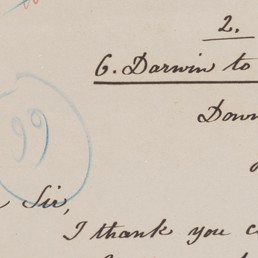 2.
C. Darwin to
Down
99
Sir,
I thank you